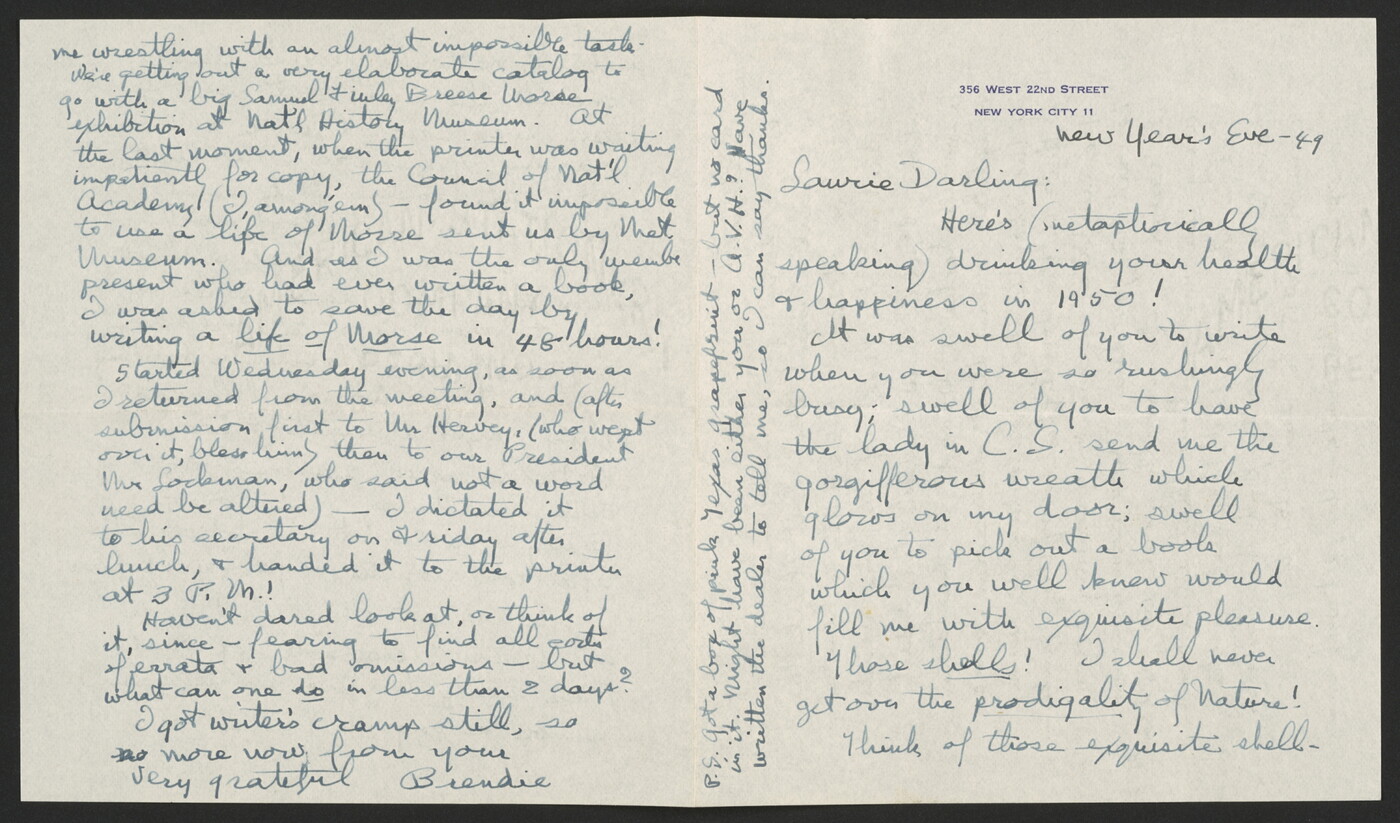 356 WEST 22ND STREET
NEW YORK CITY 11
New Year's Eve - 49
Laurie Darling:
Here's (metaphorically
speaking) drinking your health
& happiness in 1950!
It was swell of you to write
when you were so rushingly
busy; swell of you to have
the lady in C.S. send me the
gorgifferous wreath which
glows on my door; swell
of you to pick out a book
which you well knew would
fill me with exquisite pleasure.
Those shells! I shall never
get over the prodigality of Nature!
Think of those exquisite shell-
me wrestling with an almost impossible task.
We're getting out a very elaborate catalog to
go with a big Samuel Finley Breese Morse
exhibition at Nat'l History Museum. At
the last moment, when the printer was waiting
impatiently for copy, the Council of Nat'l
Academy (I, among 'em) - found it impossible
to use a life of Morse sent us by Met.
Museum. And as I was the only membe
present who had ever written a book,
I was asked to save the day by
writing a life of Morse in 48 hours!
Started Wednesday evening, as soon as
I returned from the meeting, and (after
submission first to Mr Hervey, (who wept
over it, bless him) then to our President
Mr Lockman, who said not a word
need be altered) — I dictated it
to his secretary on Friday after
lunch, & handed it to the printer
at 3 P.M.!
Haven't dared look at, or think of
it, since - fearing to find all sorts
of errata & bad omissions - but
what can one do in less than 2 days?
I got writer's cramp still, so
no more now from your
very grateful Brendie
P.S. Got a box of pink Texas grapefruit - but no card
in it. Might have been either you or A.V.H.? Have
written the dealer to tell me, so I can say thanks.